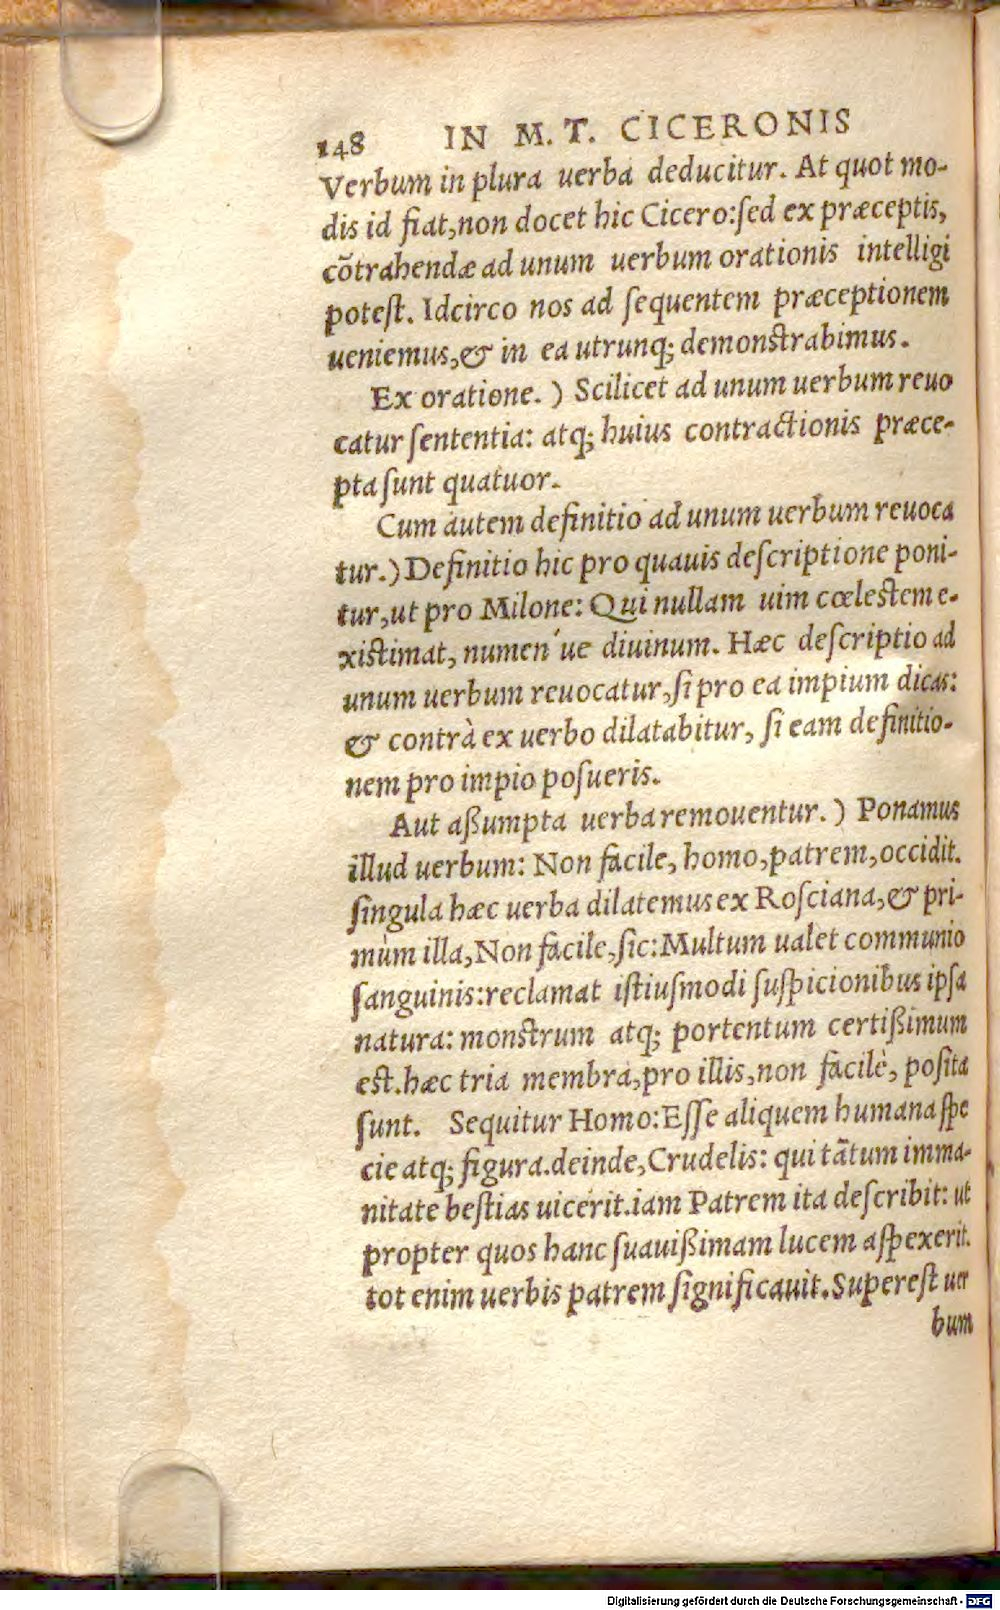 148 IN M. T. CICERONIS
Verbum in plura uerba deducitur. At quot mo-
dis id fiat, non docet hic Cicero: sed ex præceptis,
cõtrahendæ ad unum uerbum orationis intelligi
potest. Idcirco nos ad sequentem præceptionem
ueniemus, & in ea utrunq; demonstrabimus.
Ex oratione. ) Scilicet ad unum uerbum reuo
catur sententia: atq; huius contractionis præce-
pta sunt quatuor.
Cum autem definitio ad unum uerbum reuoca
tur. ) Definitio hic pro quauis descriptione poni-
tur, ut pro Milone: Qui nullam uim cœlestem e-
xistimat, numen´ue diuinum. Hæc descriptio ad
unum uerbum reuocatur, si pro ea impium dicas:
& contrà ex uerbo dilatabitur, si eam definitio-
nem pro impio posueris.
Aut aßumpta uerba remouentur. ) Ponamus
illud uerbum: Non facile, homo, patrem, occidit.
singula hæc uerba dilatemus ex Rosciana, & pri-
mùm illa, Non facile, sic: Multum ualet communio
sanguinis: reclamat istiusmodi suspicionibus ipsa
natura: monstrum atq; portentum certißimum
est. hæc tria membra, pro illis, non facilè, posita
sunt. Sequitur Homo: Esse aliquem humana spe
cie atq; figura. deinde, Crudelis: qui tãtum imma-
nitate bestias uicerit. iam Patrem ita describit: ut
propter quos hanc suauißimam lucem aspexerit.
tot enim uerbis patrem significauit. Superest uer
bum
Digitalisierung gefördert durch die Deutsche Forschungsgemeinschaft - DFG